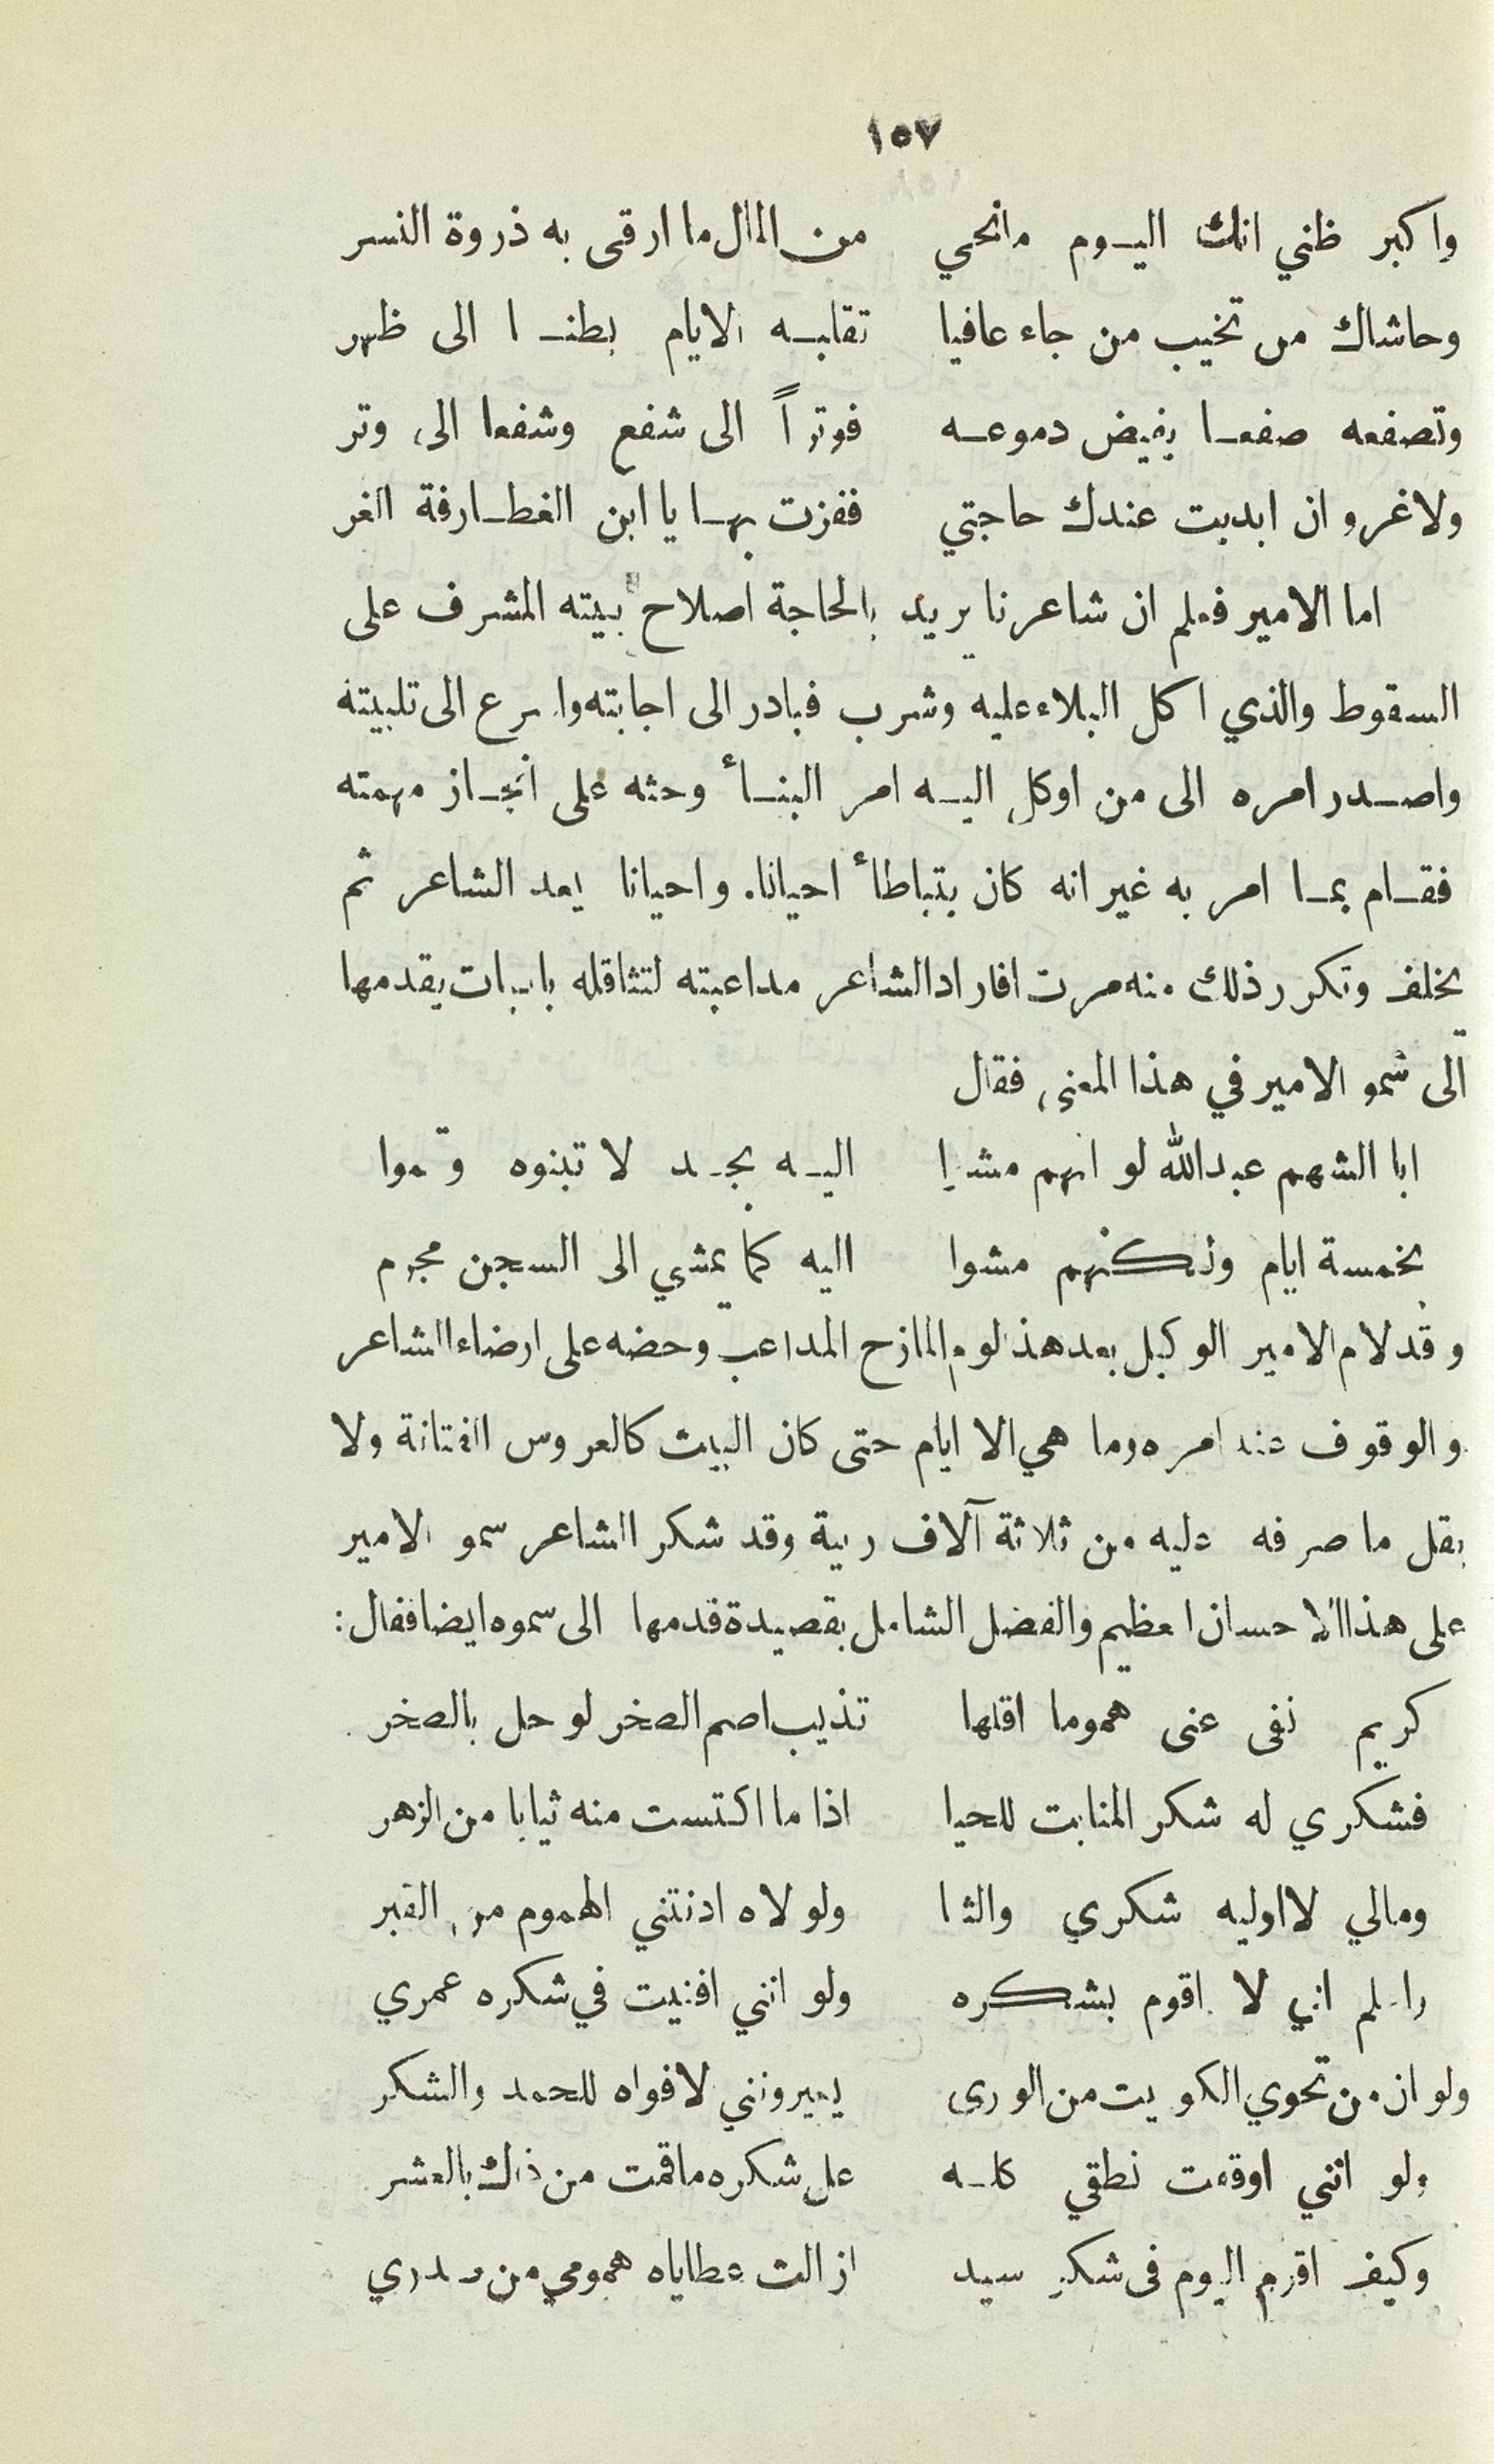 ١٥٧
واكبر ظني انك اليوم مانحي من المال ما ارقى به ذروة النسر
وحاشاك من تخيب من جاء عافيا تقلبه الايام بطنا الى ظهر
وتصفعه صفعا يفيض دموعه فوتراً الى شفع وشفعا الى وتر
ولاغرو ان ابديت عندك حاجتي ففزت بها يا ابن الغطارفة الغر
اما الامير فعلم ان شاعرنا يريد بالحاجة اصلاح بيته المشرف على
السقوط والذي اكل البلاء عليه وشرب فبادر الى اجابته واسرع الى تلبيته
واصدر امره الى من اوكل اليه امر البنأ وحثه على انجاز مهمته
فقام بما امر به غير انه كان يتباطأ احيانا. واحيانا يعد الشاعر ثم
يخلف وتكرر ذلك منه مرت افاراد الشاعر مداعبته لتثاقله بابيات يقدمها
الى سمو الامير في هذا المعنى فقال
ابا الشهم عبدالله لو انهم مشوا اليه بجد لا تبنوه وتموا
بخمسة ايام ولكنهم مشوا اليه كما يمشي الى السجن مجرم
وقد لام الامير الوكيل بعد هذ لوم المازح المداعب وحضه على ارضاء الشاعر
والوقوف عند امره وما هي الا ايام حتى كان البيت كالعروس الفتانة ولا
يقل ما صرفه عليه من ثلاثة آلاف ربية وقد شكر الشاعر سمو الامير
على هذا الاحسان العظيم والفضل الشامل بقصيدة قدمها الى سموه ايضا فقال:
كريم نفى عنى هموما اقلها تذيب اصم الصخر لو حل بالصخر
فشكري له شكر المنابت للحيا اذا ما اكتست منه ثيابا من الزهر
ومالي لا اوليه شكري والثنا ولولاه ادنتني الهموم من القبر
واعلم اني لا اقوم بشكره ولو انني افنيت في شكره عمري
ولو ان من تحوي الكويت من الورى يعيرونني لافواه للحمد والشكر
ولو انني اوقفت نطقي كله على شكره ماقمت من ذلك بالعشر
وكيف اقوم اليوم فى شكر سيد ازالت عطاياه همومي من صدري